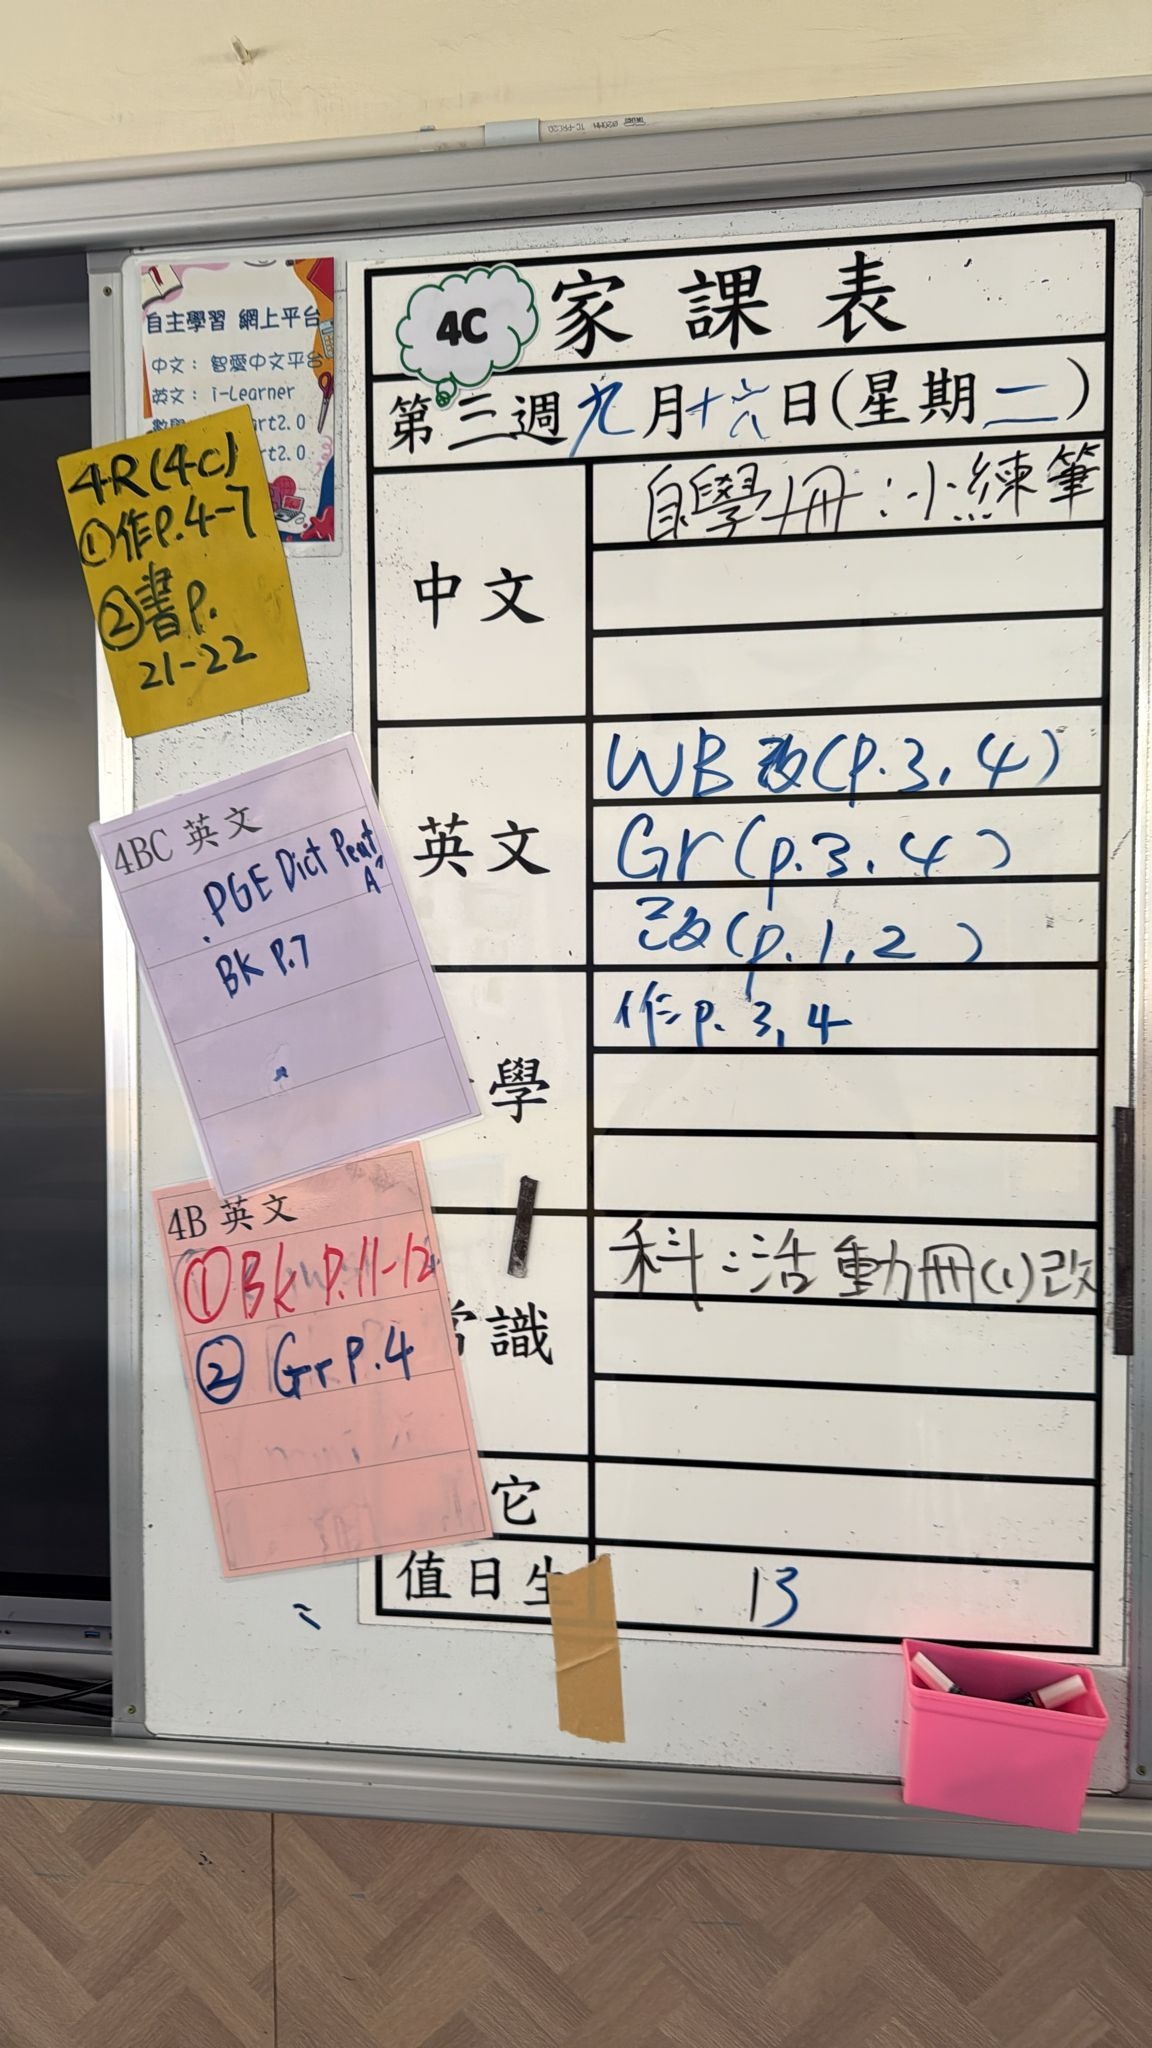 自主學習 網上平台
中文： 智愛中文平台
英文： i-Learner
art2.0
rt2.0
4R(4C)
①作P.4-7
②書P.
21-22
4BC 英文
PGE Dict
A
BK P.7
4B 英文
①BK P.11-12
② Gr P.4
4C 家課表
第三週九月十六日(星期二)
中文
自學冊：小練筆
英文
WB 改(P.3, 4)
Gr (p.3, 4)
改(p.1, 2)
學
作p. 3, 4
常識
科：活動冊(1)改
它
值日生
13